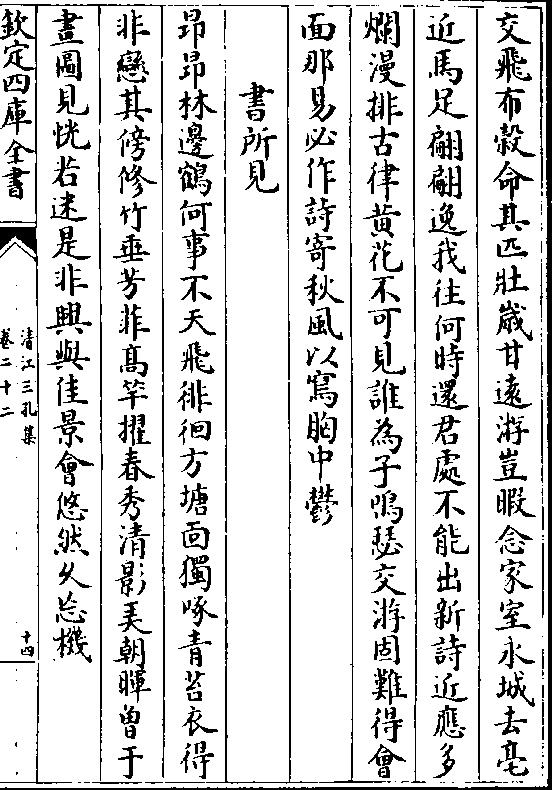 交飛布穀命其匹壯歳甘遠游豈暇念家室永城去亳
近馬足翩翩逸我往何時還君處不能出新詩近應多
爛漫排古律黄花不可見誰為子鳴瑟交游固難得會
面那易必作詩寄秋風以寫胸中鬱
書所見
昂昂林邊鶴何事不天飛徘徊方塘面獨啄青苔衣得
非戀其傍修竹垂芳菲髙竿擢春秀清影美朝暉曽于
畫圖見恍若迷是非興與佳景會悠然乆忘機
欽定四庫全書
清江三孔集
卷二十二
十四